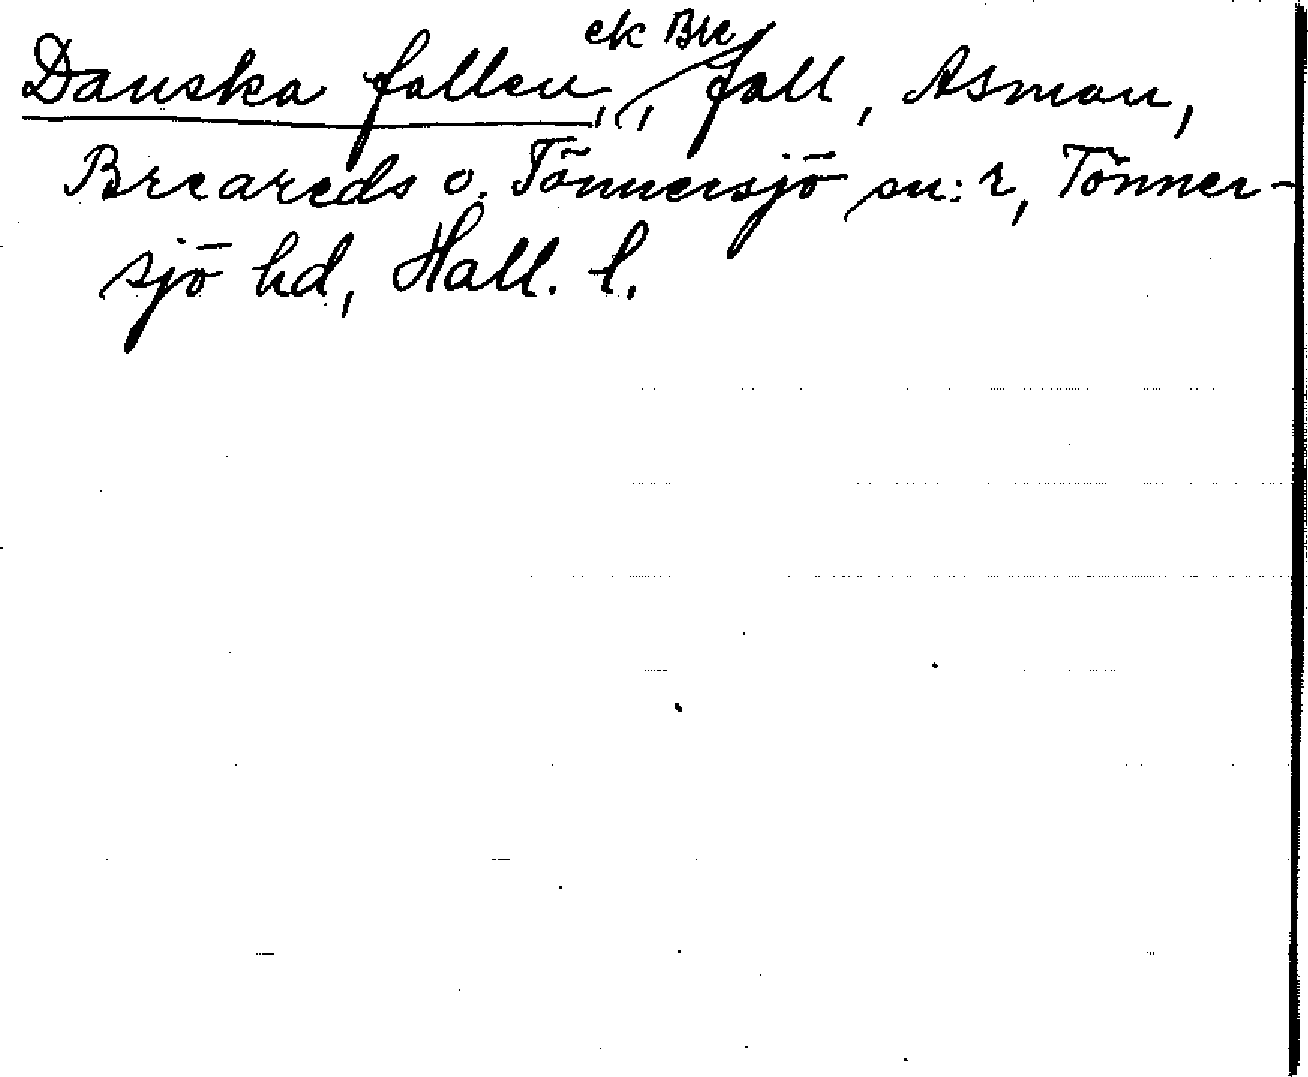 Danska fallen, ek Bre, fall, Asman,
Breareds o. Tönnersjö sn:r, Tönner-
sjö hd, Hall. l.